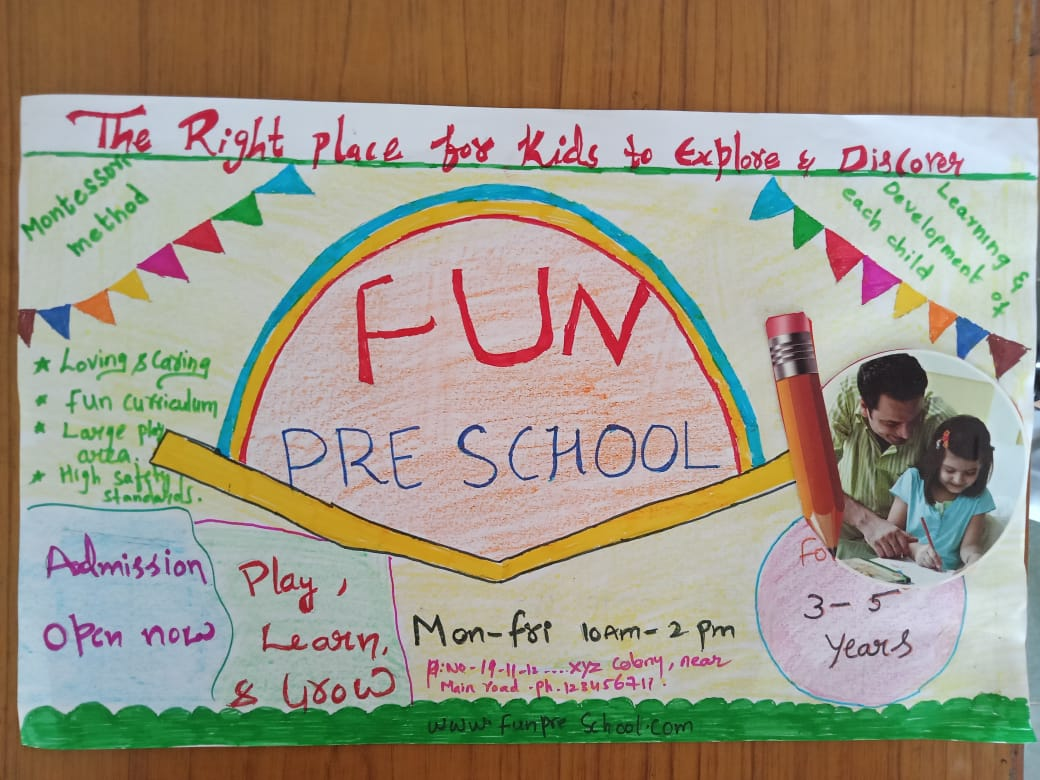 The Right place for Kids to Explore & Discover
Montessori
method
Learning &
Development of
each child
FUN
PRE SCHOOL
★ Loving & Caring
★ Fun curriculum
★ Large play
area.
★ High safety
standards.
Admission
Open now
Play,
Learn,
& Grow
Mon-fri 10AM-2 pm
19-11-12 .... xyz Colony, near
Main road - ph.
For
3-5
Years
www.funpre School.com